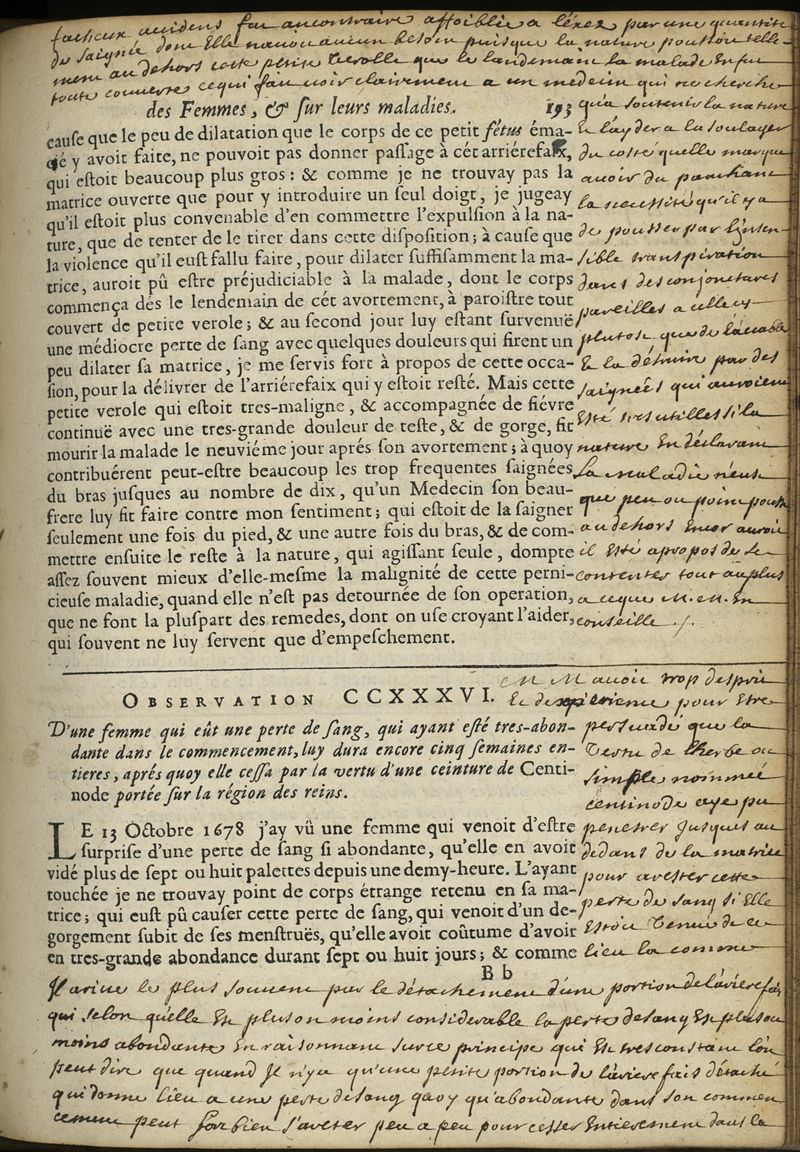 facheux accidens fut aucontraire affoiblie a lexez par une quantité
de saignée dont Elle navoit aucun besoin puisque la nature poussoit telle
ment au dehors cette petite verolle que le landemain la malade En fut
toute couverte ce qui fait voir clairement a un medecin qui ne cherche
qu'a soutenir la nature
& l'ayder a la soulager
du costé quelle marque
avoir du panchant
la necessité qu'il y a
de pousser par l'insen
sible transpiration
dans des conjonctures
pareilles a celle cy
plutost que de l'accabler
& la détruire par des
saignées qui auroient
esté tres utilles si la
nature En déclarant
la maladie n'eust
que peu ou point poussé
au dehors
il Esté apropos de se
contenter tout au plus
a ce que M. M. En
conseille ./.
des Femmes, & sur leurs maladies. 193
cause que le peu de dilatation que le corps de ce petit fétus éma-
cié y avoit faite, ne pouvoit pas donner passage à cét arriérefaix,
qui estoit beaucoup plus gros : & comme je ne trouvay pas la
matrice ouverte que pour y introduire un seul doigt, je jugeay
qu'il estoit plus convenable d'en commettre l'expulsion à la na-
ture, que de tenter de le tirer dans cette disposition ; à cause que
la violence qu'il eust fallu faire, pour dilater suffisamment la ma-
trice, auroit pû estre préjudiciable à la malade, dont le corps
commença dés le lendemain de cét avortement, à paroistre tout
couvert de petite verole ; & au second jour luy estant survenuë
une médiocre perte de sang avec quelques douleurs qui firent un
peu dilater sa matrice, je me servis fort à propos de cette occa-
sion, pour la délivrer de l'arriérefaix qui y estoit resté. Mais cette
petite verole qui estoit tres-maligne, & accompagnée de fiévre
continuë avec une tres-grande douleur de teste, & de gorge, fit
mourir la malade le neuviéme jour aprés son avortement ; à quoy
contribuérent peut-estre beaucoup les trop frequentes saignées
du bras jusques au nombre de dix, qu'un Medecin son beau-
frere luy fit faire contre mon sentiment ; qui estoit de la saigner
seulement une fois du pied, & une autre fois du bras, & de com-
mettre ensuite le reste à la nature, qui agissant seule, dompte
assez souvent mieux d'elle-mesme la malignité de cette perni-
cieuse maladie, quand elle n'est pas detournée de son operation,
que ne font la pluspart des remedes, dont on use croyant l'aider,
qui souvent ne luy servent que d'empeschement.
OBSERVATION CCXXXVI.
D'une femme qui eût une perte de sang, qui ayant esté tres-abon-
dante dans le commencement, luy dura encore cinq semaines en-
tieres, aprés quoy elle cessa par la vertu d'une ceinture de Centi-
node portée sur la région des reins.
LE 13 Octobre 1678 j'ay vû une femme qui venoit d'estre
surprise d'une perte de sang si abondante, qu'elle en avoit
vidé plus de sept ou huit palettes depuis une demy-heure. L'ayant
touchée je ne trouvay point de corps étrange retenu en sa ma-
trice ; qui eust pû causer cette perte de sang, qui venoit d'un de-
gorgement subit de ses menstruës, qu'elle avoit coûtume d'avoir
en tres-grande abondance durant sept ou huit jours ; & comme
B b
M M avoit trop desprit
& dexpérience pour Etre
persuadé que la
Vertu de lherbe ou
simple nommée
centinode aye pu
penetrer jusques au
dedans de la matrice
pour arester cette
perte de sang si Elle
Estoit Venue de ce
lieu la comme
Il arive le plus souvent par le détachement d'une portion de l'arierefais
qui selon quelle Est plus ou moins considerable la perte de sang Est plus ou
moins abondante En raisonnant sur ce principe qui Est tres constant l'on
peut dire que quand Il n'y a qu'une petite portion de l'arierefais détaché
qui donne lieu a une perte de sang quoy qu'abondante dans son commen
cement peut fort bien s'areter peu a peu pour cesser Entierement dans la